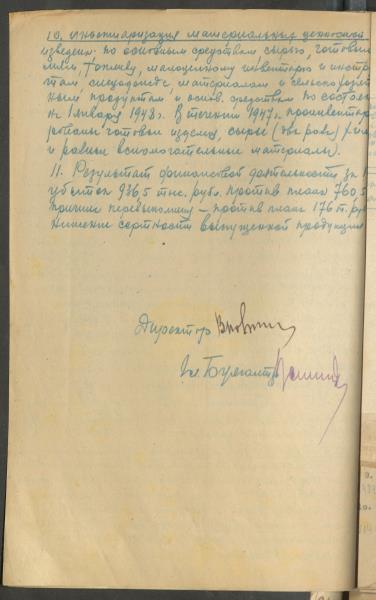 10. Инвентаризация материальных ценностей
изведен. по основным средствам сырью готовым
топливу, малоценному инвентарю и инстр
там, спецодежде, материалам и сельскохозяй
ным продуктам и основ. средствам по состоян
на 1 января 1948 г. В течении 1947 г. проинвентар
готовы изделия, сырьё (две
и разные вспомогательные материалы).
11. Результат финансовой деятельности за 1
убыток 9365 тыс. руб. против плана 760,5
причине перевыполн – против плана 176 т. ру
нижение сортности выпущенной продукции
Директор
Гл. Бухгалтер